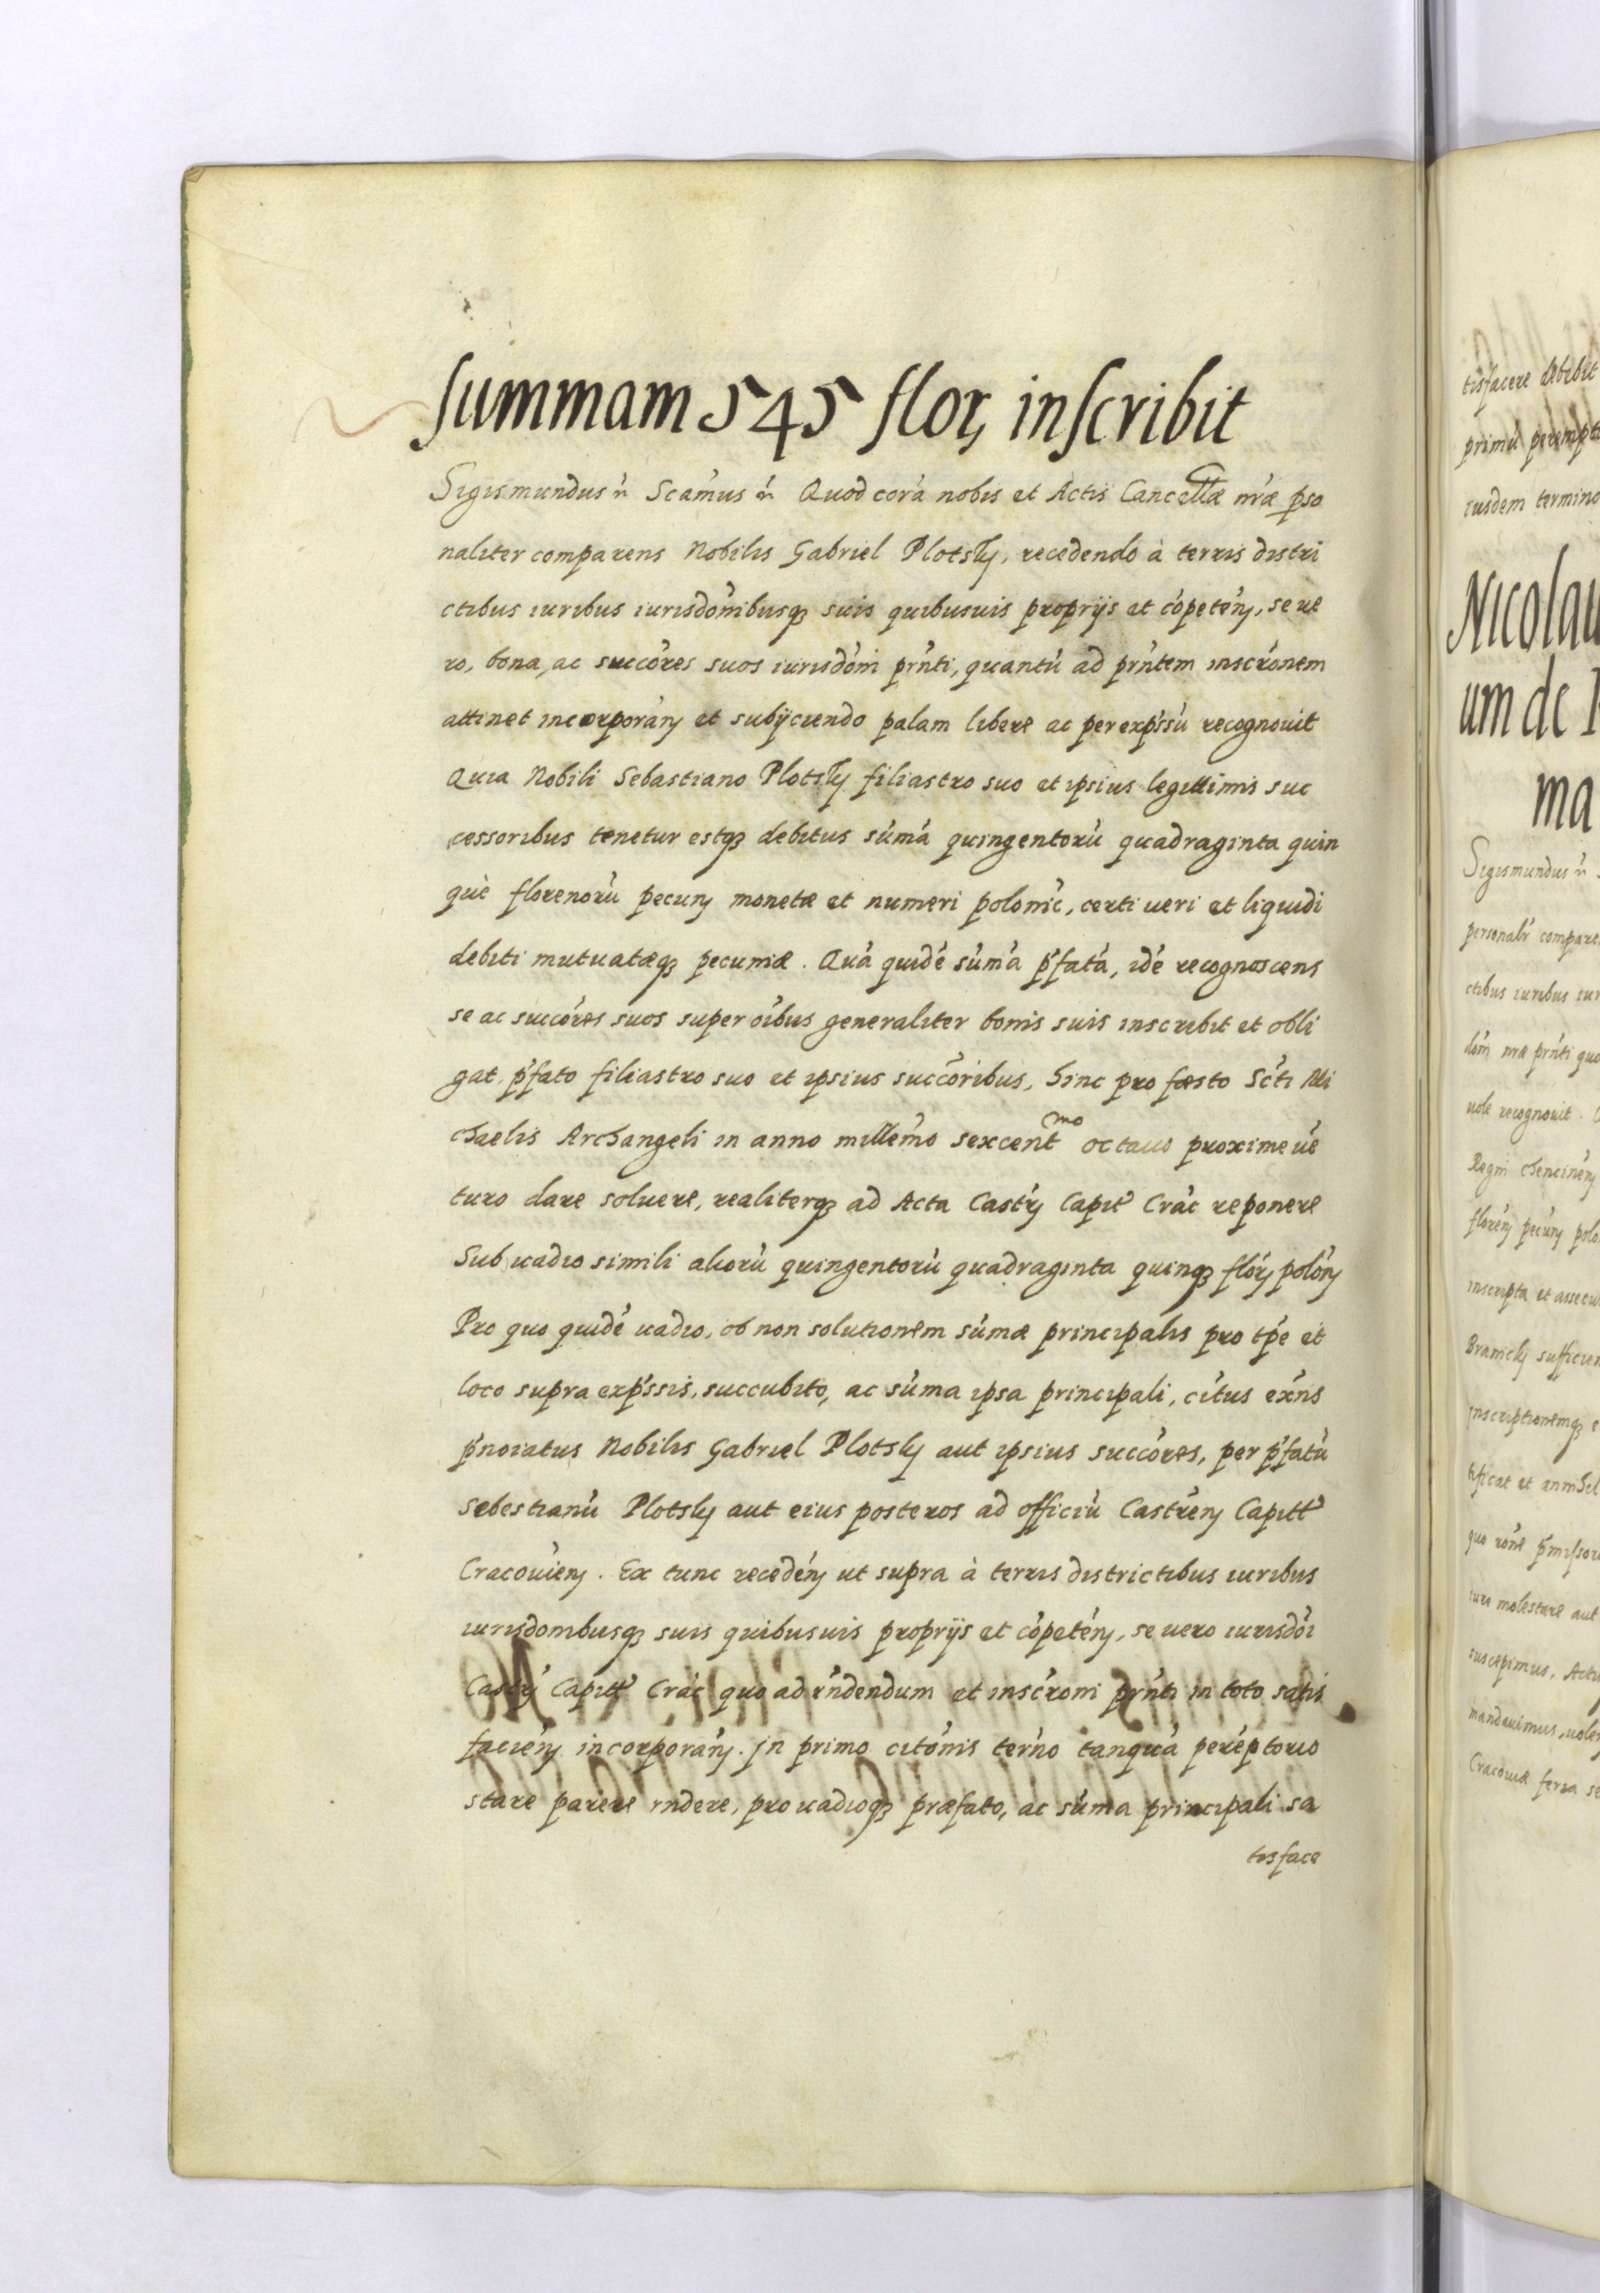 summam 545 flor, inscribit
Sigismundus etc Scamus etc Quod corá nobis et Actis Cancellæ nræ pso
naliter comparens Nobilis Gabriel Plotsky, recedendo à terris distri
ctibus iuribus iurisdónibusq suis quibusuis proprijs et cópeteń, se ue
ro, bona, ac succóres suos iurisdóni prńti, quantú ad prńtem inscrónem
attinet incorporáń et subijciendo palam libere ac per expŕssú recognouit
Quia Nobili Sebastiano Plotsky filiastro suo et ipsius legittimis suc
cessoribus tenetur estq debitus súmá quingentorú quadraginta quin
què florenorú pecuń monetæ et numeri polonić, certi ueri et liquidi
debiti mutuatæq pecuniæ. Quá quidé súmá ṕfatá, idé recognoscens
se ac succóres suos super oíbus generaliter bonis suis inscribit et obli
gat ṕfato filiastro suo et ipsius succóribus, hinc pro fæsto Scti Mi
chaelis Archangeli in anno millemo sexcentmo octauo proxime ué
turo dare soluere, realiterq ad Acta Castŕ Capit Crać reponere
Sub uadio simili aliorú quingentorú quadraginta quinq flóŕ polóń
Pro quo quidé uadio, ob non solutionem súmæ principalis pro tpé et
loco supra expŕssis, succubito, ac súma ipsa principali, citus exńs
pńoiatus Nobilis Gabriel Plotsky aut ipsius succóres, per ṕfatú
Sebestianú Plotsky aut eius posteros ad officiú Castreń Capitt
Cracouień. Ex tunc recedéń ut supra à terris districtibus iuribus
iurisdonibusq suis quibusuis proprijs et cópetéń, se uero iurisdói
Castŕ Capitt Crać quo ad rńdendum et inscŕoni prńti in toto satis
facień incorporáń. Jn primo citónis terńo tanquá peréptorio
stare parere rńdere, pro uadioq præfato, ac súma principali sa
tisface
tisfacere debebit
primú perempto
iusdem termino
Nicolau
um de
ma
Sigismundus etc
personalr compare
ctibus iuribus iur
dóni nræ prńti quo
uole recognouit.
Regni
floreń pecuń polo
inscripta et assecu
Branicky sufficien
Jnscriptionemq
tificat et annihil
quo róne ṕmissor
iure molestare aut
suscepimus, Actis
mandauimus, uolen
Cracouiæ feria se